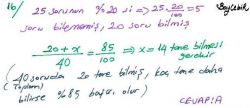 16) 25 sorunun %20 si ⇒ 25·20/100 = 5 Böylelikle
soru bilememiş, 20 soru bilmiş
20+x/40 = 85/100 ⇒ x = 14 tane bilmesi
gerekir
(40 soruda 20 tane bilmiş, kaç tane daha
(Toplam)
bilirse %85 başarı olur)
CEVAP:A